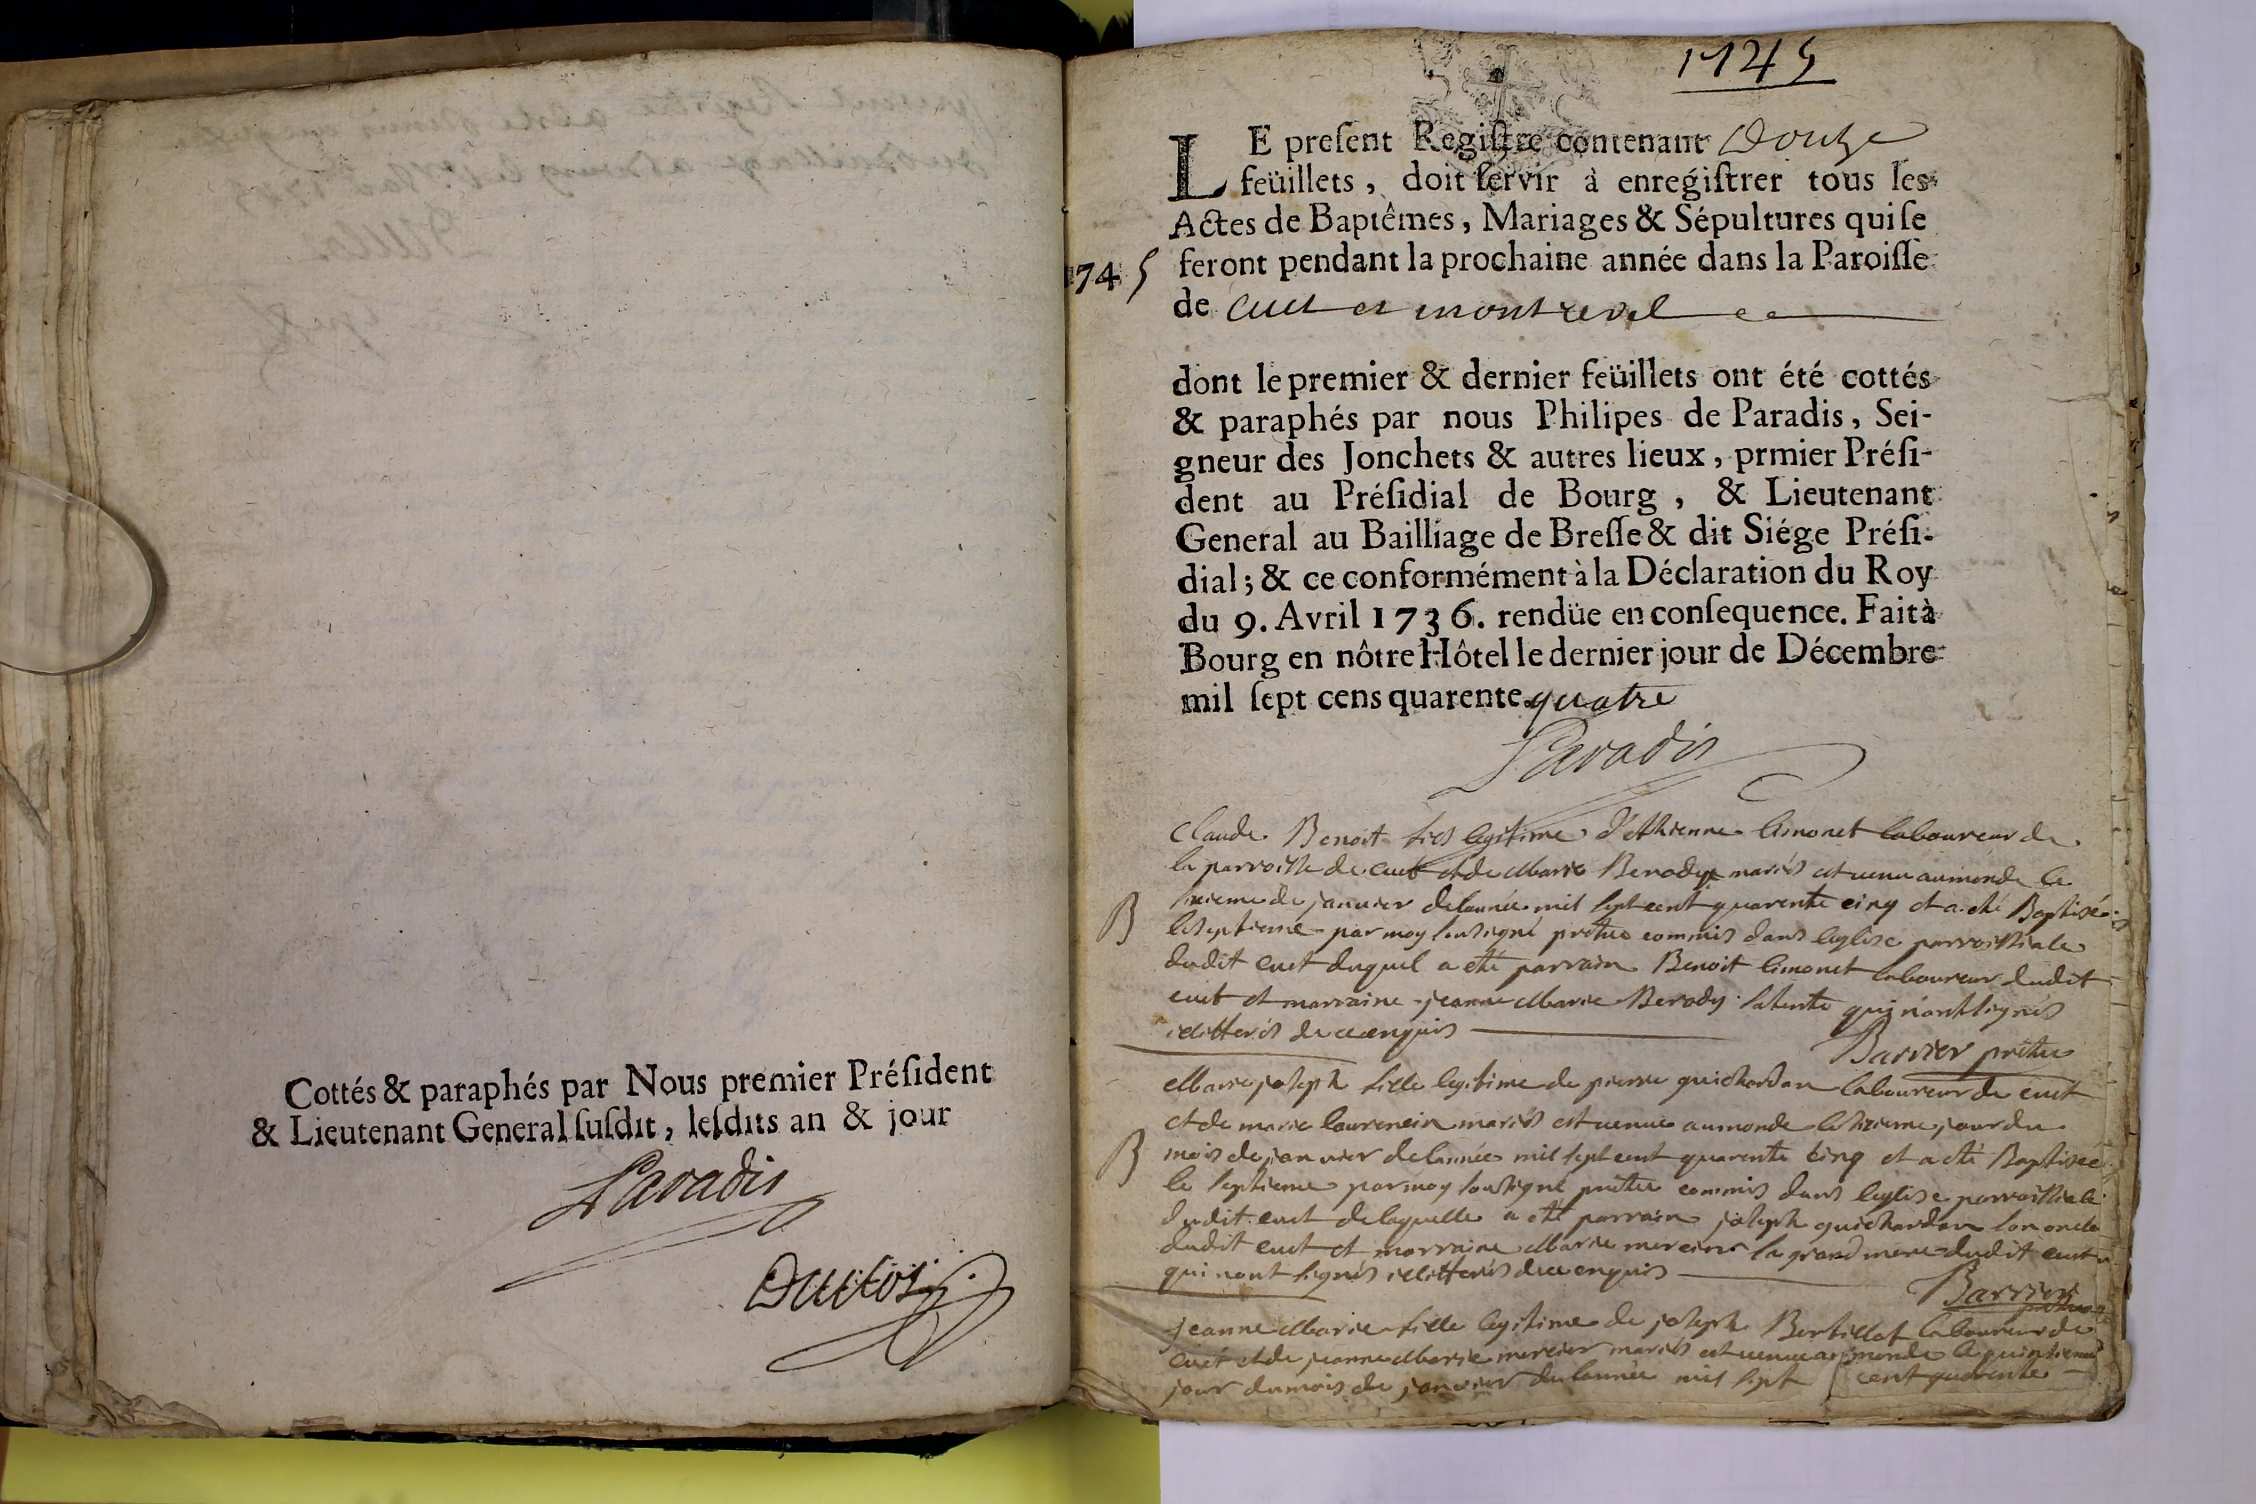 Cottés & paraphés par Nous premier Préſident
& Lieutenant General ſuſdit, leſdits an & jour
Paradis
1745
LE preſent Regiſtre contenant Douze
feüillets, doit ſervir à enregiſtrer tous les
Actes de Baptêmes, Mariages & Sépultures qui ſe
feront pendant la prochaine année dans la Paroiſſe
1745
de Cuet et montrevel
dont le premier & dernier feüillets ont été cottés
& paraphés par nous Philipes de Paradis, Sei-
gneur des Jonchets & autres lieux, prmier Préſi-
dent au Préſidial de Bourg, & Lieutenant
General au Bailliage de Breſſe & dit Siége Préſi-
dial; & ce conformément à la Déclaration du Roy
du 9. Avril 1736. rendüe en conſequence. Fait à
Bourg en nôtre Hôtel le dernier jour de Décembre
mil ſept cens quarente quatre
Paradis
Claude Benoit fils legitime d'Ethienne limonet laboureur de
la parroisse de Cuet et de Marie Berody mariés est venu au monde le
sixieme de janvier de lannée mil sept cent quarente cinq et a eté Baptisé
B
le septieme par moy soussigné prètre commis dans leglise parroissiale
dudit cuet duquel a eté parrain Benoit limonet laboureur dudit
cuet et marraine jeanne Marie Berody sa tente qui n'ont signés
illitterés de ce enquis
Barrier prètre
Marie joseph fille legitime de pierre guichardan laboureur de cuet
et de marie laurencin mariés est venue au monde le sixieme jour du
mois de janvier de lannée mil sept cent quarente cinq et a eté Baptisée
B
le septieme par moy soussigné prètre commis dans leglise parroissiale
dudit cuet de laquelle a eté parrain joseph guichardan son oncle
dudit cuet et marraine Marie mercier sa grand mere dudit cuet
qui n'ont signés illitterés de ce enquis
Barrier
prètre
jeanne Marie fille legitime de joseph Bertillot laboureur de
cuet et de jeanne Marie mercier mariés est venue au monde le quinzieme
jour du mois de janvier de lannée mil sept cent quarente